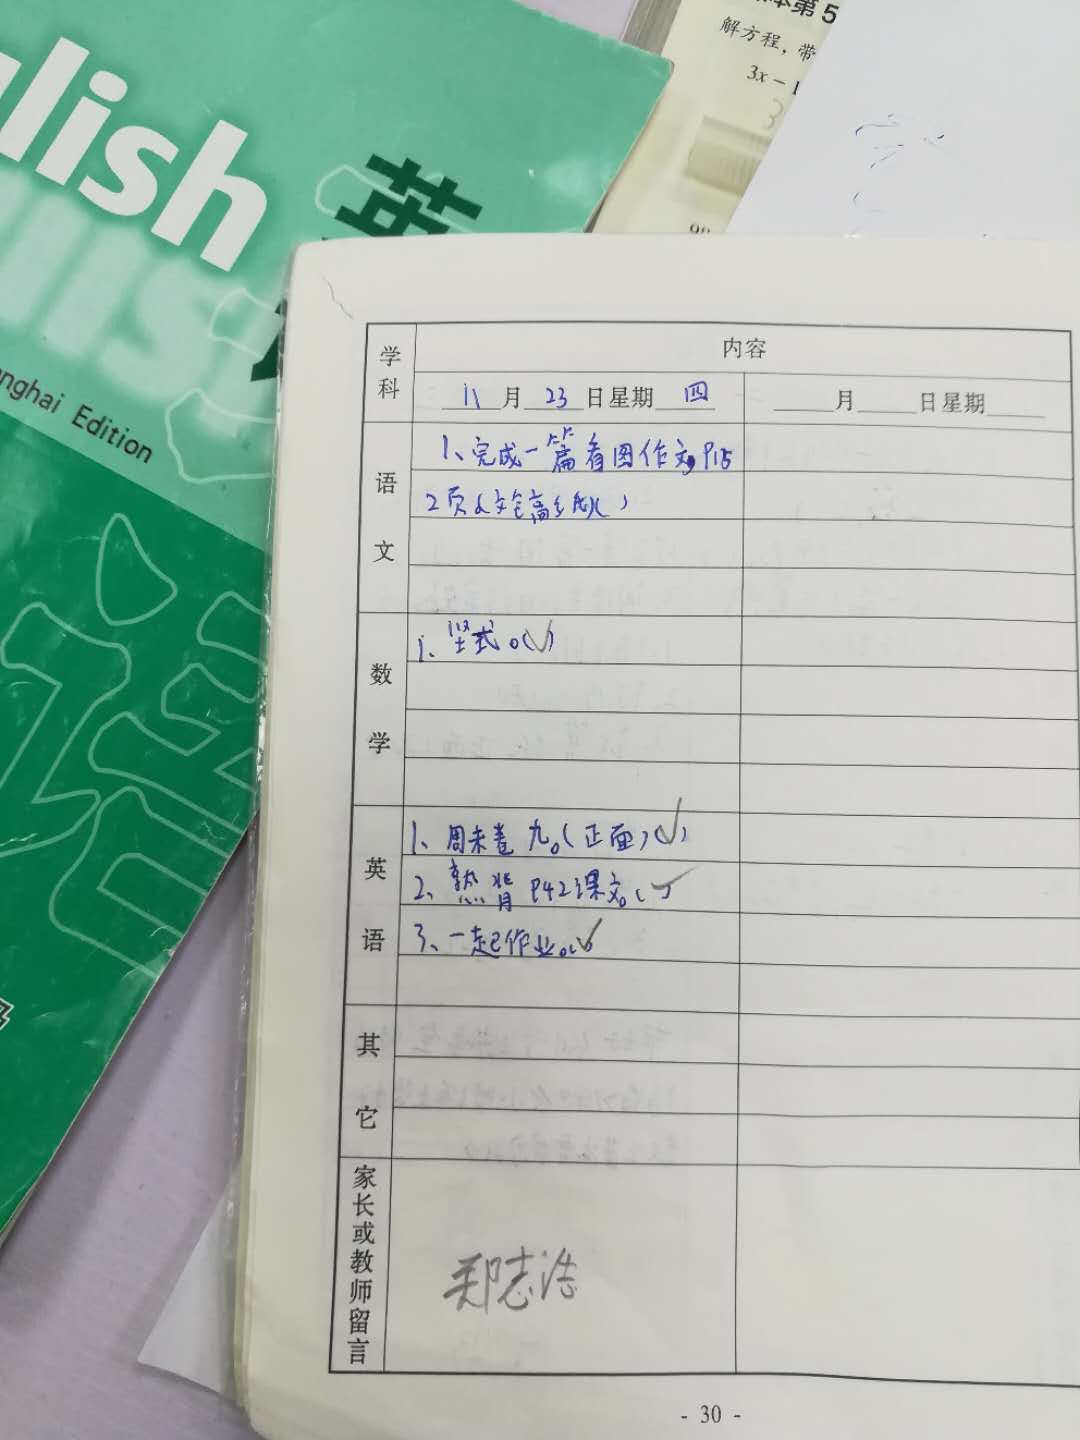 lish
英
nghai Edition
本第5
解方程，带
3x－1
学科
内容
11月23日星期四
月 日星期
语文
1、完成一篇看图作文，P15
2页
数学
1、竖式。(✓)
英语
1、周末卷九。(正面)(✓)
2、熟背P42课文。(✓)
3、一起作业。(✓)
其它
家长或教师留言
郑志浩
- 30 -